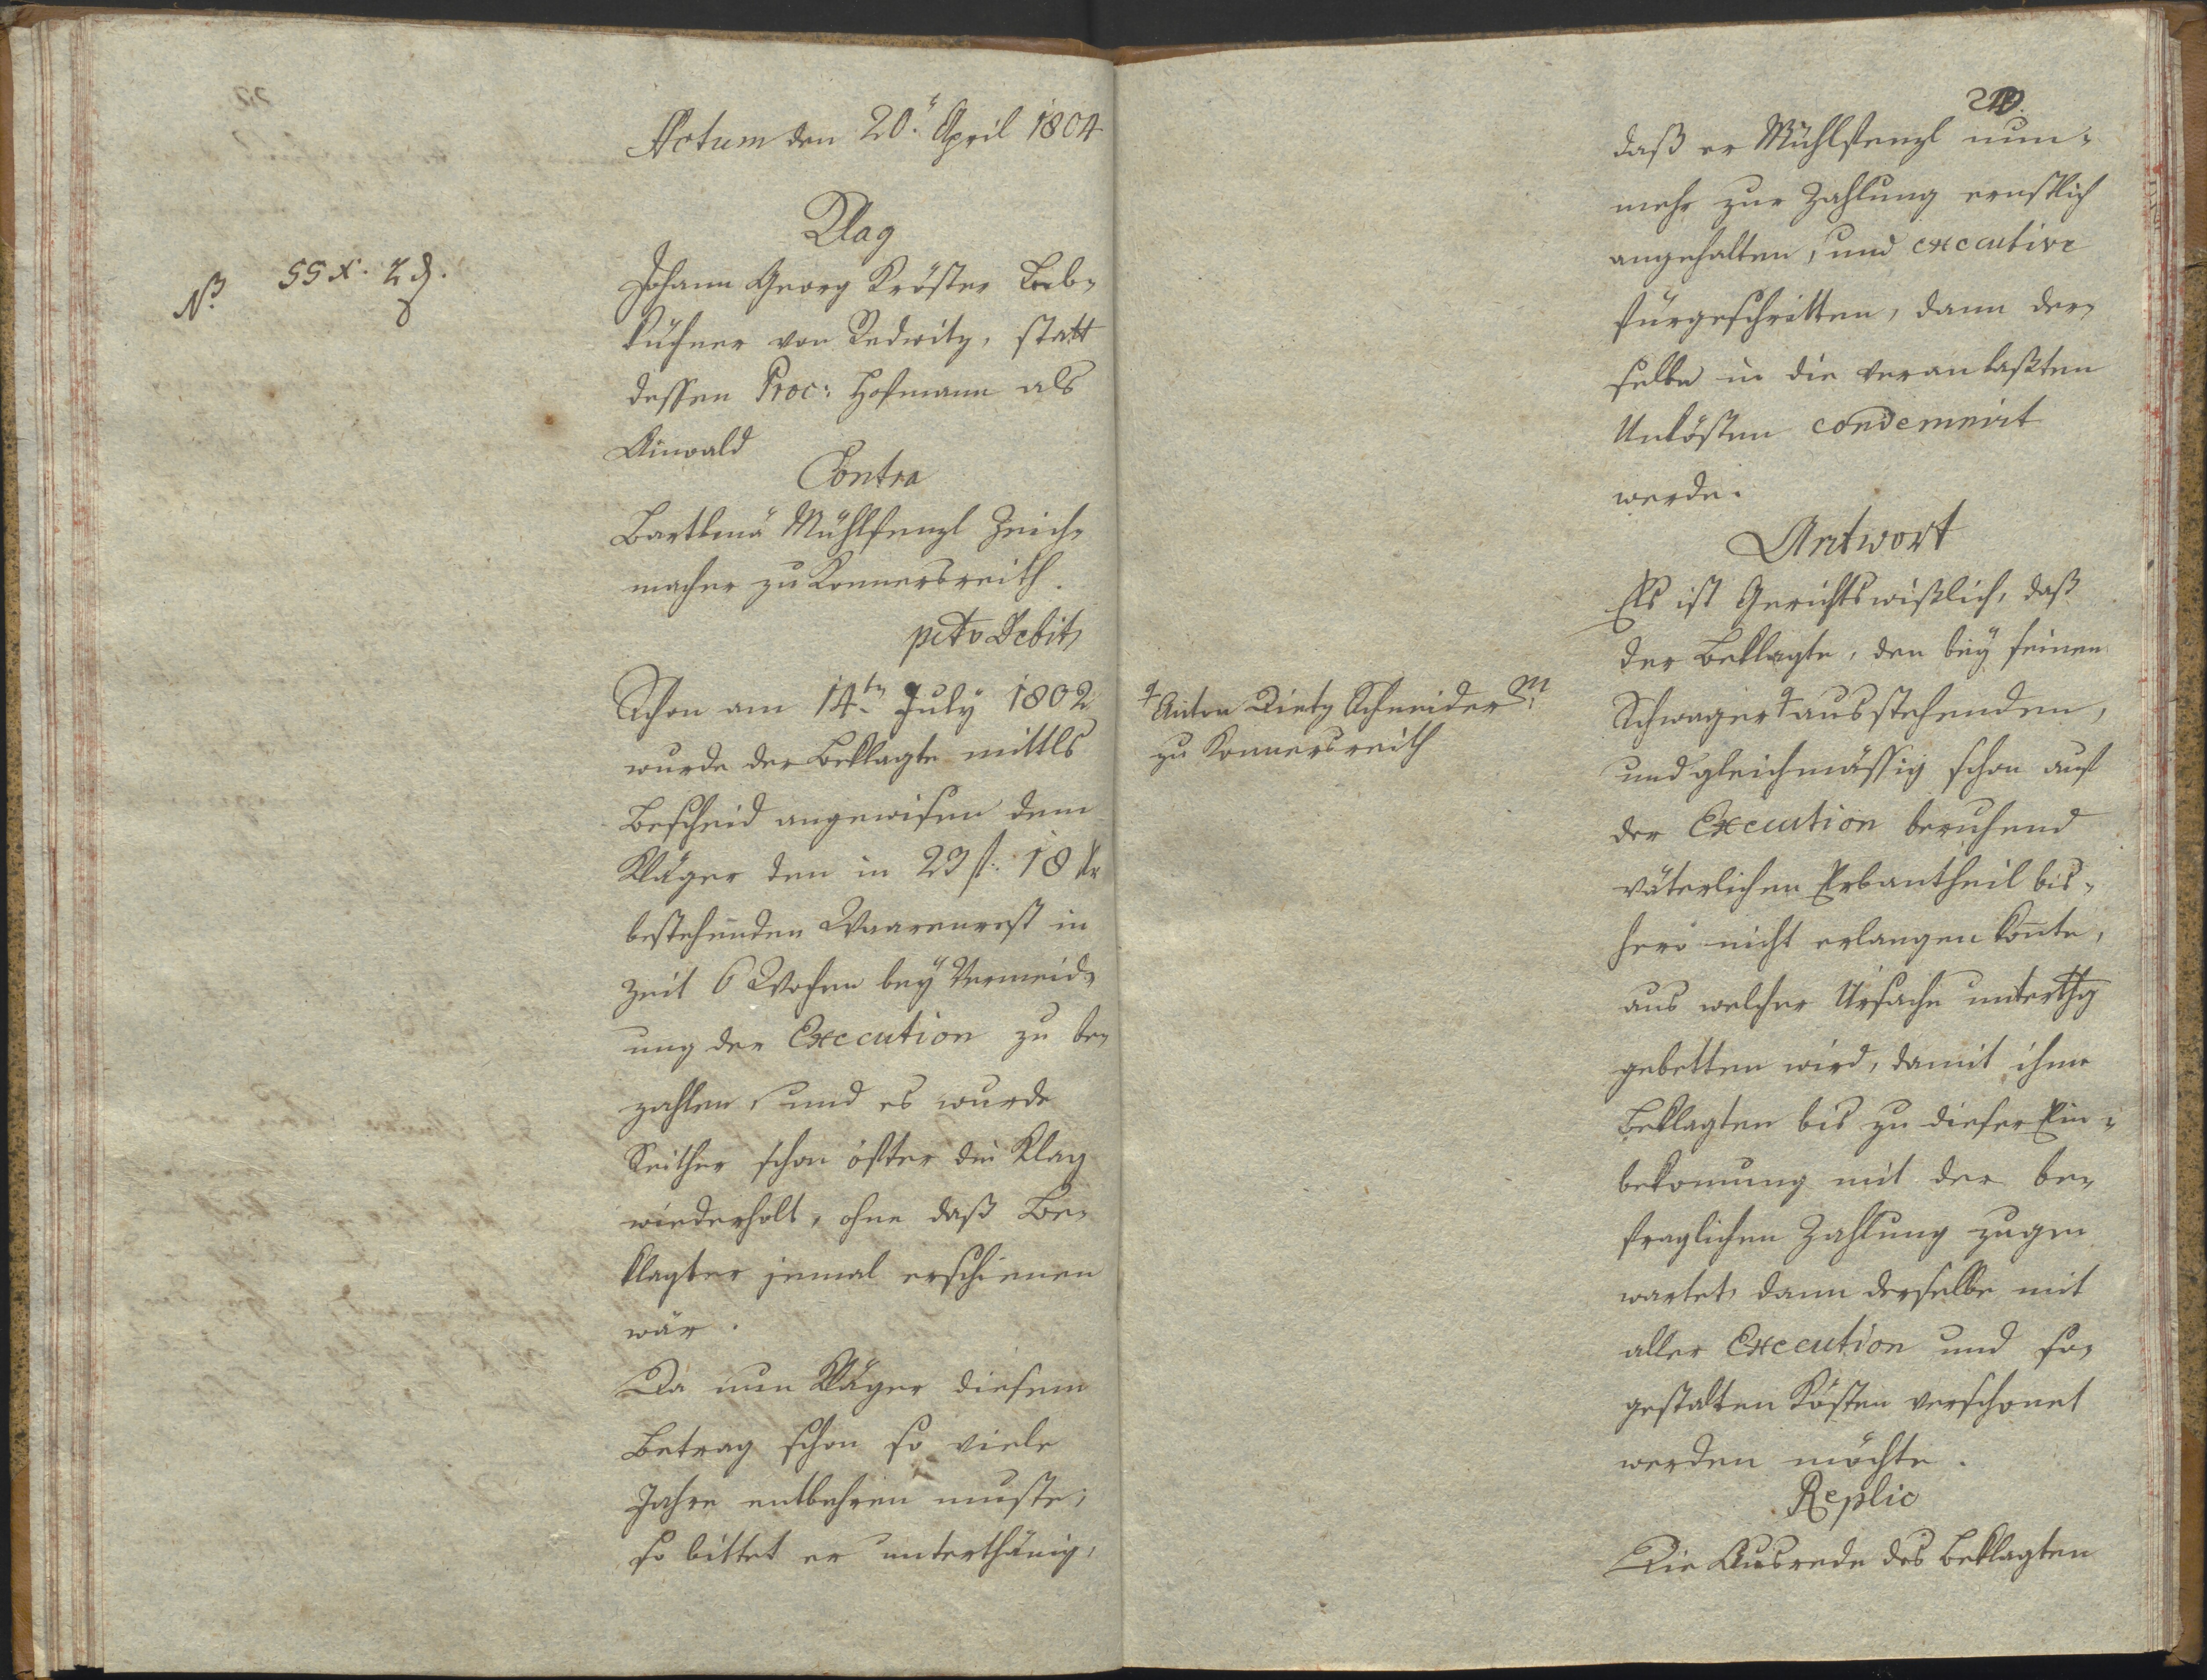 Actum den 20.t April 1804
Klag
Nß. 55 x. 2 d.
Johann Georg Kröster Leb-
küchner von Redwitz, statt
dessen Proc: Hofmann als
Anwald
Contra
Bartlmä Mühlfenzl Zeich-
macher zu Konnersreith.
pcto Debiti
Schon am 14.tn July 1802
wurde der Beklagte mittls
Bescheid angewisen dem
Kläger den in 23 f. 18 kr
bestehenden Waarenrest in
Zeit 6 Wochen bey Vermeid-
ung der Execution zu be-
zahlen, und es wurde
Seither schon öfter die Klag
wiederholt, ohne daß Be-
klagter jemal erschienen
wär.
Da nun Kläger diesem
Betrag schon so viele
Jahre entbehren muste;
so bittet er unterthänig,
daß er Mühlfenzl nun-
mehr zur Zahlung ernstlich
angehalten, und executive
fürgeschritten, dann der-
selbe in die veranlaßten
Unkösten condemnirt
werde.
Antwort
Es ist Gerichtswißlich, daß
der Beklagte, den bey seinen
Schwager + ausstehenden,
+ Anton Dietz Schneider M.
zu Konnersreith
und gleichmässig schon auf
der Execution beruhend
väterlichen Erbantheil bis-
hero nicht erlangen konte,
aus welcher Ursache unterthg
gebetten wird, damit ihme
Beklagten bis zu dieser Ein-
bekomung mit der be-
fraglichen Zahlung zuge-
wartet, dann derselbe mit
aller Execution und so-
gestalten Kösten verschonet
werden möchte.
Replic
Die Ausrede des Beklagten